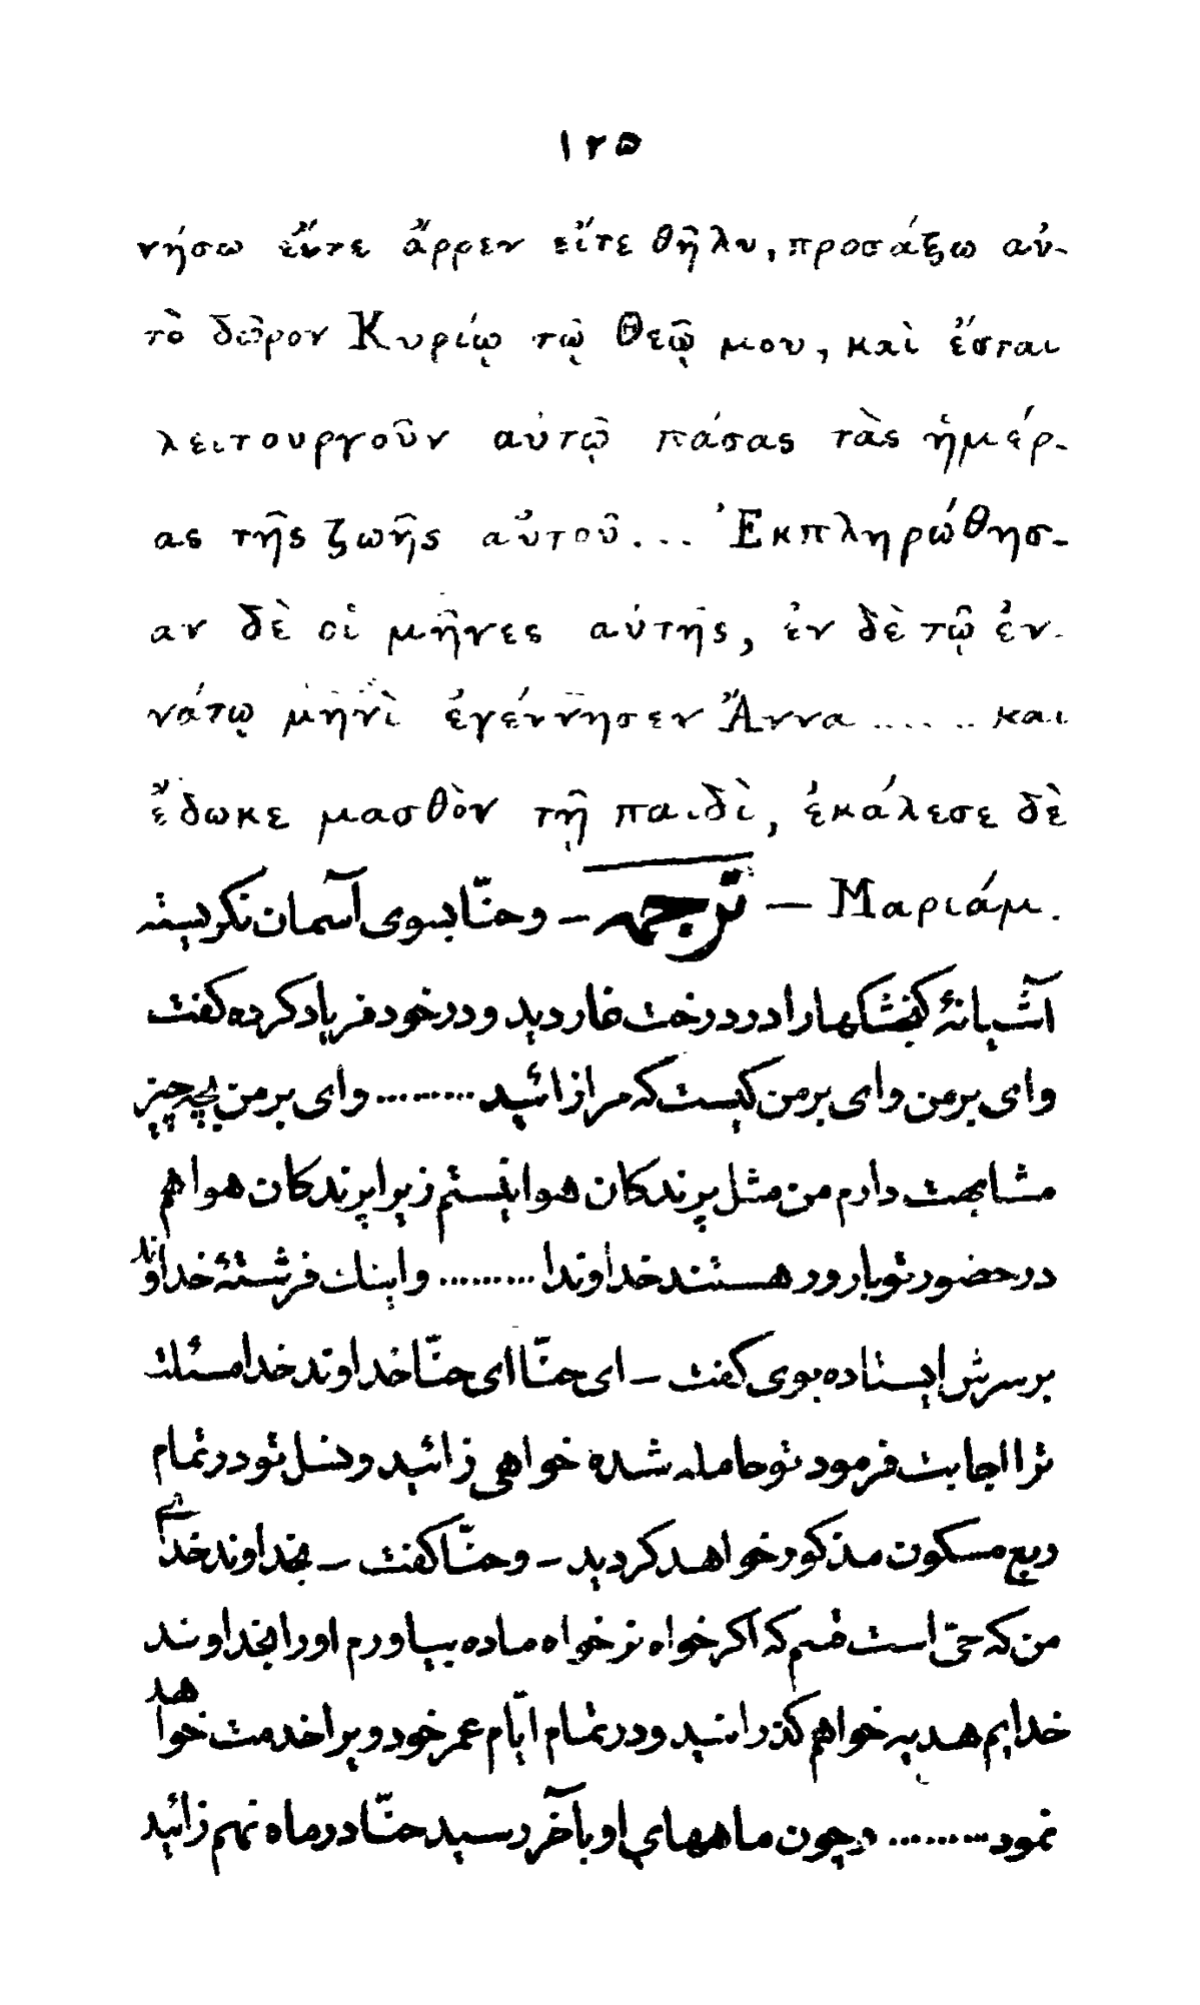 ۱۲۵
νήσω εἴτε ἄρρεν εἴτε θῆλυ, προσάξω αὐ-
τὸ δῶρον Κυρίῳ τῷ Θεῷ μου, καὶ ἔσται
λειτουργοῦν αὐτῷ πάσας τὰς ἡμέρ-
ας τῆς ζωῆς αὐτοῦ... Ἐκπληρώθησ-
αν δὲ οἱ μῆνες αὐτῆς, ἐν δὲ τῷ ἐν-
νάτῳ μηνὶ ἐγέννησεν Ἄννα ...... και
ἔδωκε μασθὸν τῇ παιδὶ, ἐκάλεσε δὲ
Μαριάμ. — ترجمه – و حنّا بسوی آسمان نکریسته
آشیانهٔ کنفشکها را در درخت غار دید و در خود فریاد کرده کفت
وای بر من وای بر من کیست که مرا زائید ......... وای بر من بچه چیز
مشابهت دارم من مثل پرندکان هوا نیستم زیرا پرندکان هوا هم
در حضور تو بارور هستند خداوندا ......... و اینك فرشتهٔ خداوند
بر سرش ایستاده بوی کفت – ای حنّا ای حنّا خداوند خدا مسئلت
ترا اجابت فرمود تو حامله شده خواهی زائید و نسل تو در تمام
ربع مسکون مذکور خواهد کردید – و حنّا کفت – بخداوند خدای
من که حیّ است قسم که اکر خواه نر خواه ماده بیاورم اورا بخداوند
خدایم هدیه خواهم کذرانید و در تمام ایّام عمر خود ویرا خدمت خواهد
نمود ......... و چون ماههای او بآخر رسید حنّا در ماه نهم زائید